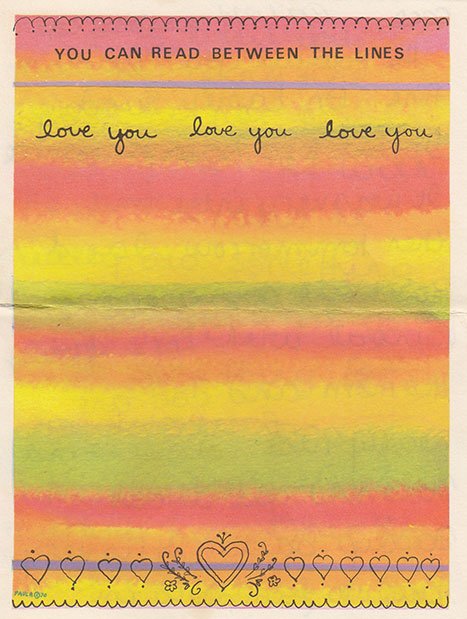 YOU CAN READ BETWEEN THE LINES
love you love you love you
PAULA ©70